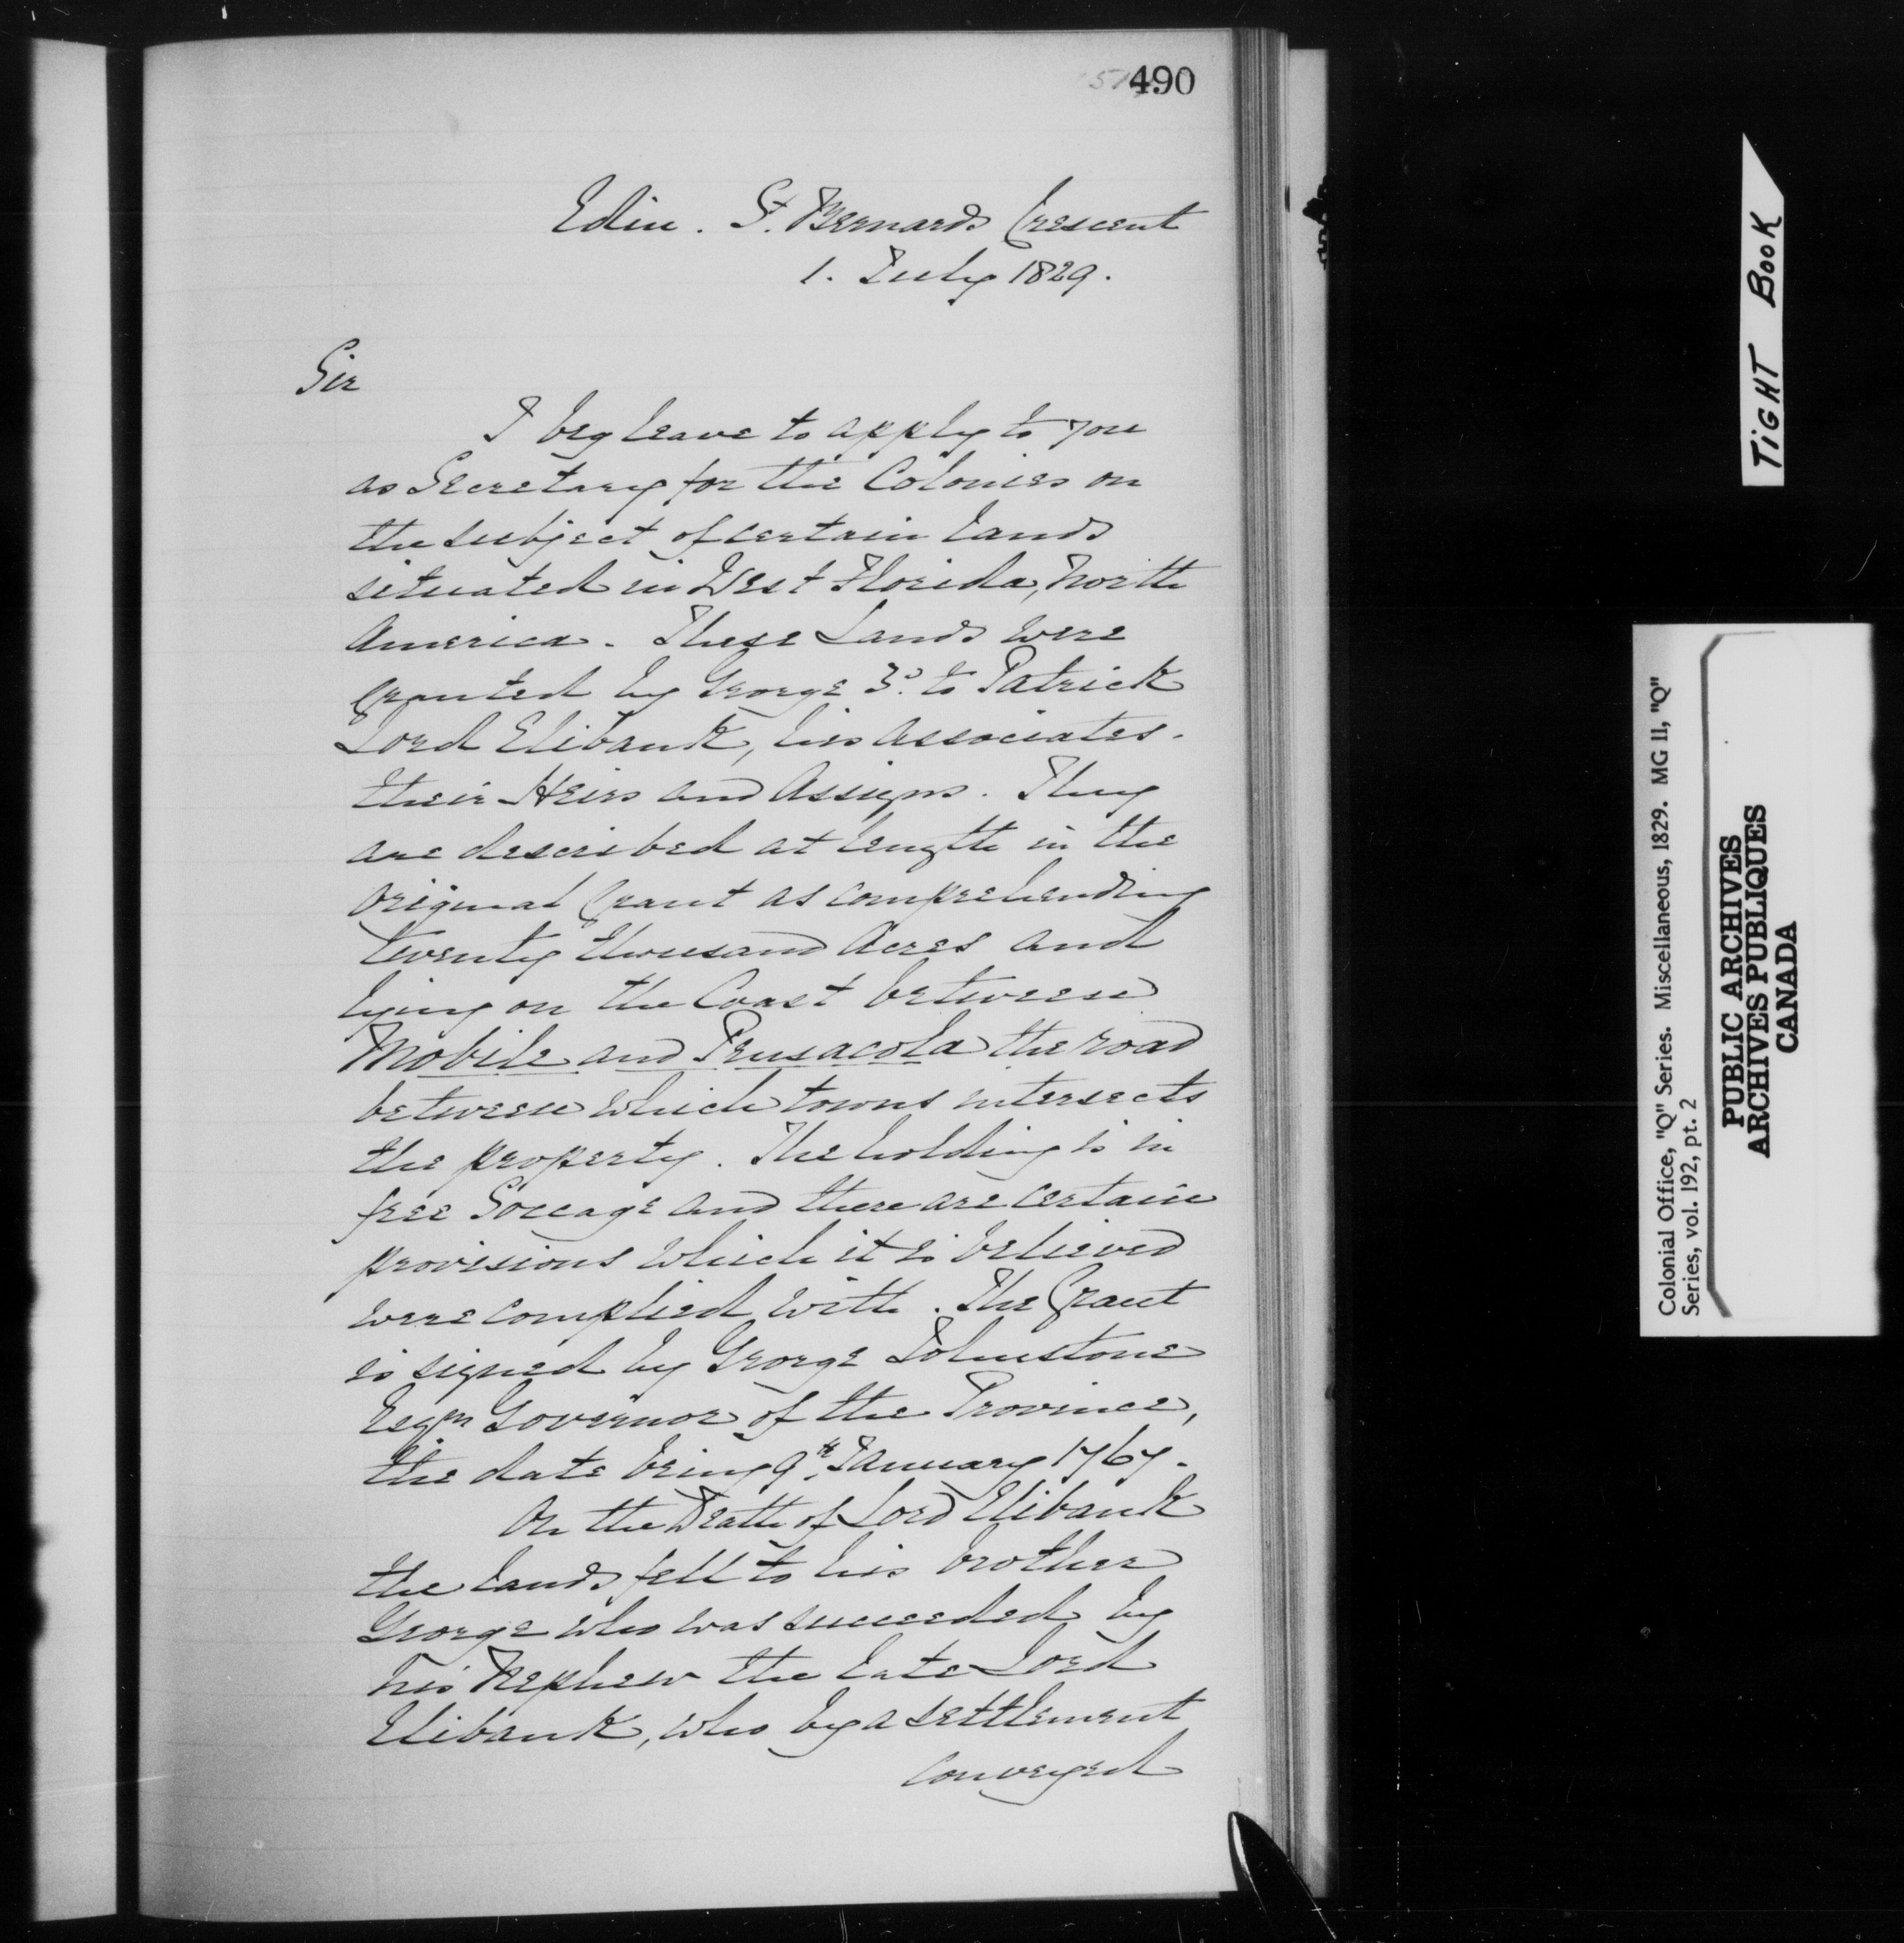 490
Edin. St. Bernards Crescent
1. July 1829.
Sir
I beg leave to apply to you
as Secretary for the Colonies on
the subject of certain lands
situated in West Florida, North
America. These Lands were
Granted by George 3d. to Patrick
Lord Elibank, his associates.
their Heirs and Assigns. They
are described at length in the
original Grant as comprehending
twenty thousand Acres and
lying on the Coast between
Mobile and Pensacola the road
between which towns intersects
the property. The holding is in
free Soccage and there are certain
provisions which it is believed
were complied with. The Grant
is signed by George Johnstone
Esqre Governor of the Province,
the date being 9th January 1767.
On the Death of Lord Elibank
the lands fell to his brother
George who was succeeded by
his Nephew the late Lord
Elibank, who by a settlement
conveyed
TiGHT BOOK
Colonial Office, "Q" Series. Miscellaneous, 1829. MG 11, "Q"
Series, vol. 192, pt. 2
PUBLIC ARCHIVES
ARCHIVES PUBLIQUES
CANADA